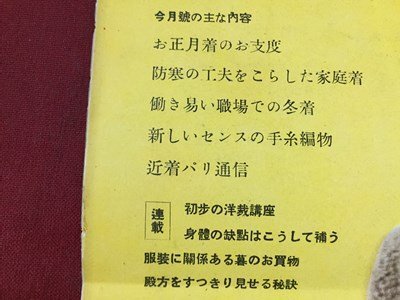 今月號の主な內容
お正月着のお支度
防寒の工夫をこらした家庭着
働き易い職場での冬着
新しいセンスの手糸編物
近着パリ通信
連載
初歩の洋裁講座
身體の缺點はこうして補う
服裝に関係ある暮のお買物
殿方をすつきり見せる秘訣